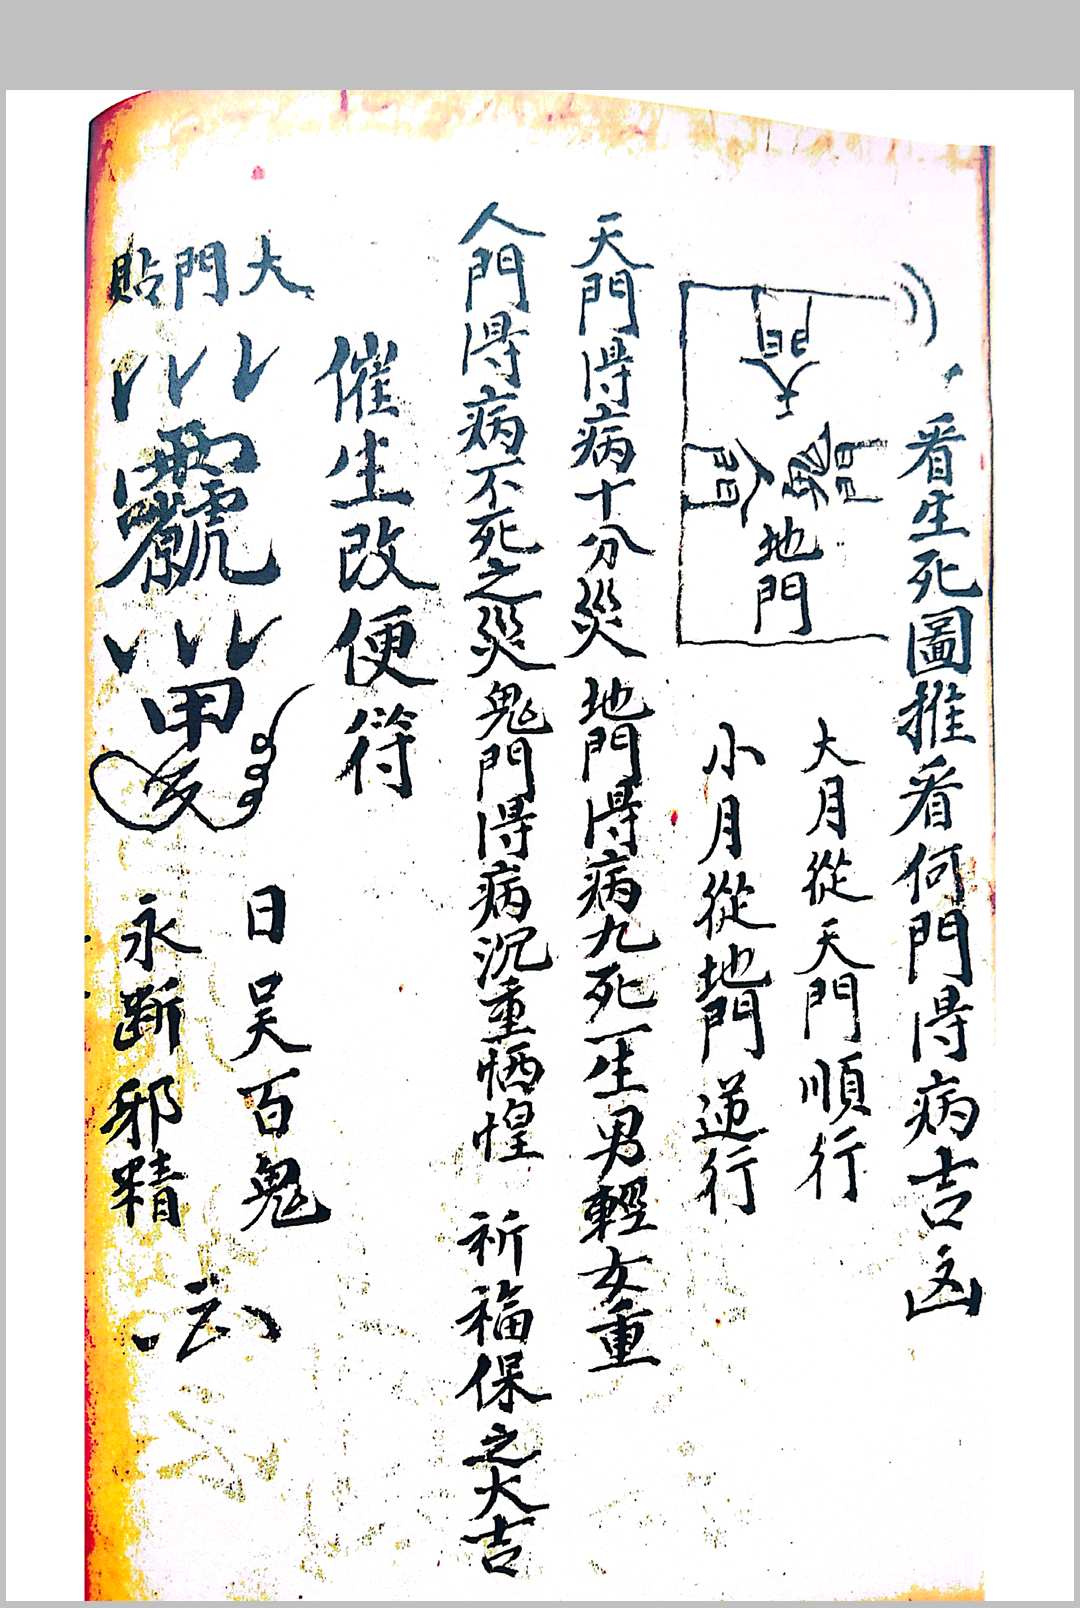 看生死圖推看何門得病吉凶
大月從天門順行
小月從地門逆行
天門
人門
鬼門
地門
天門得病十分災 地門得病九死一生男輕女重
人門得病不死之災鬼門得病沉重恓惶 祈福保之大吉
催生改便符
大門貼
日吴百鬼
永断邪精